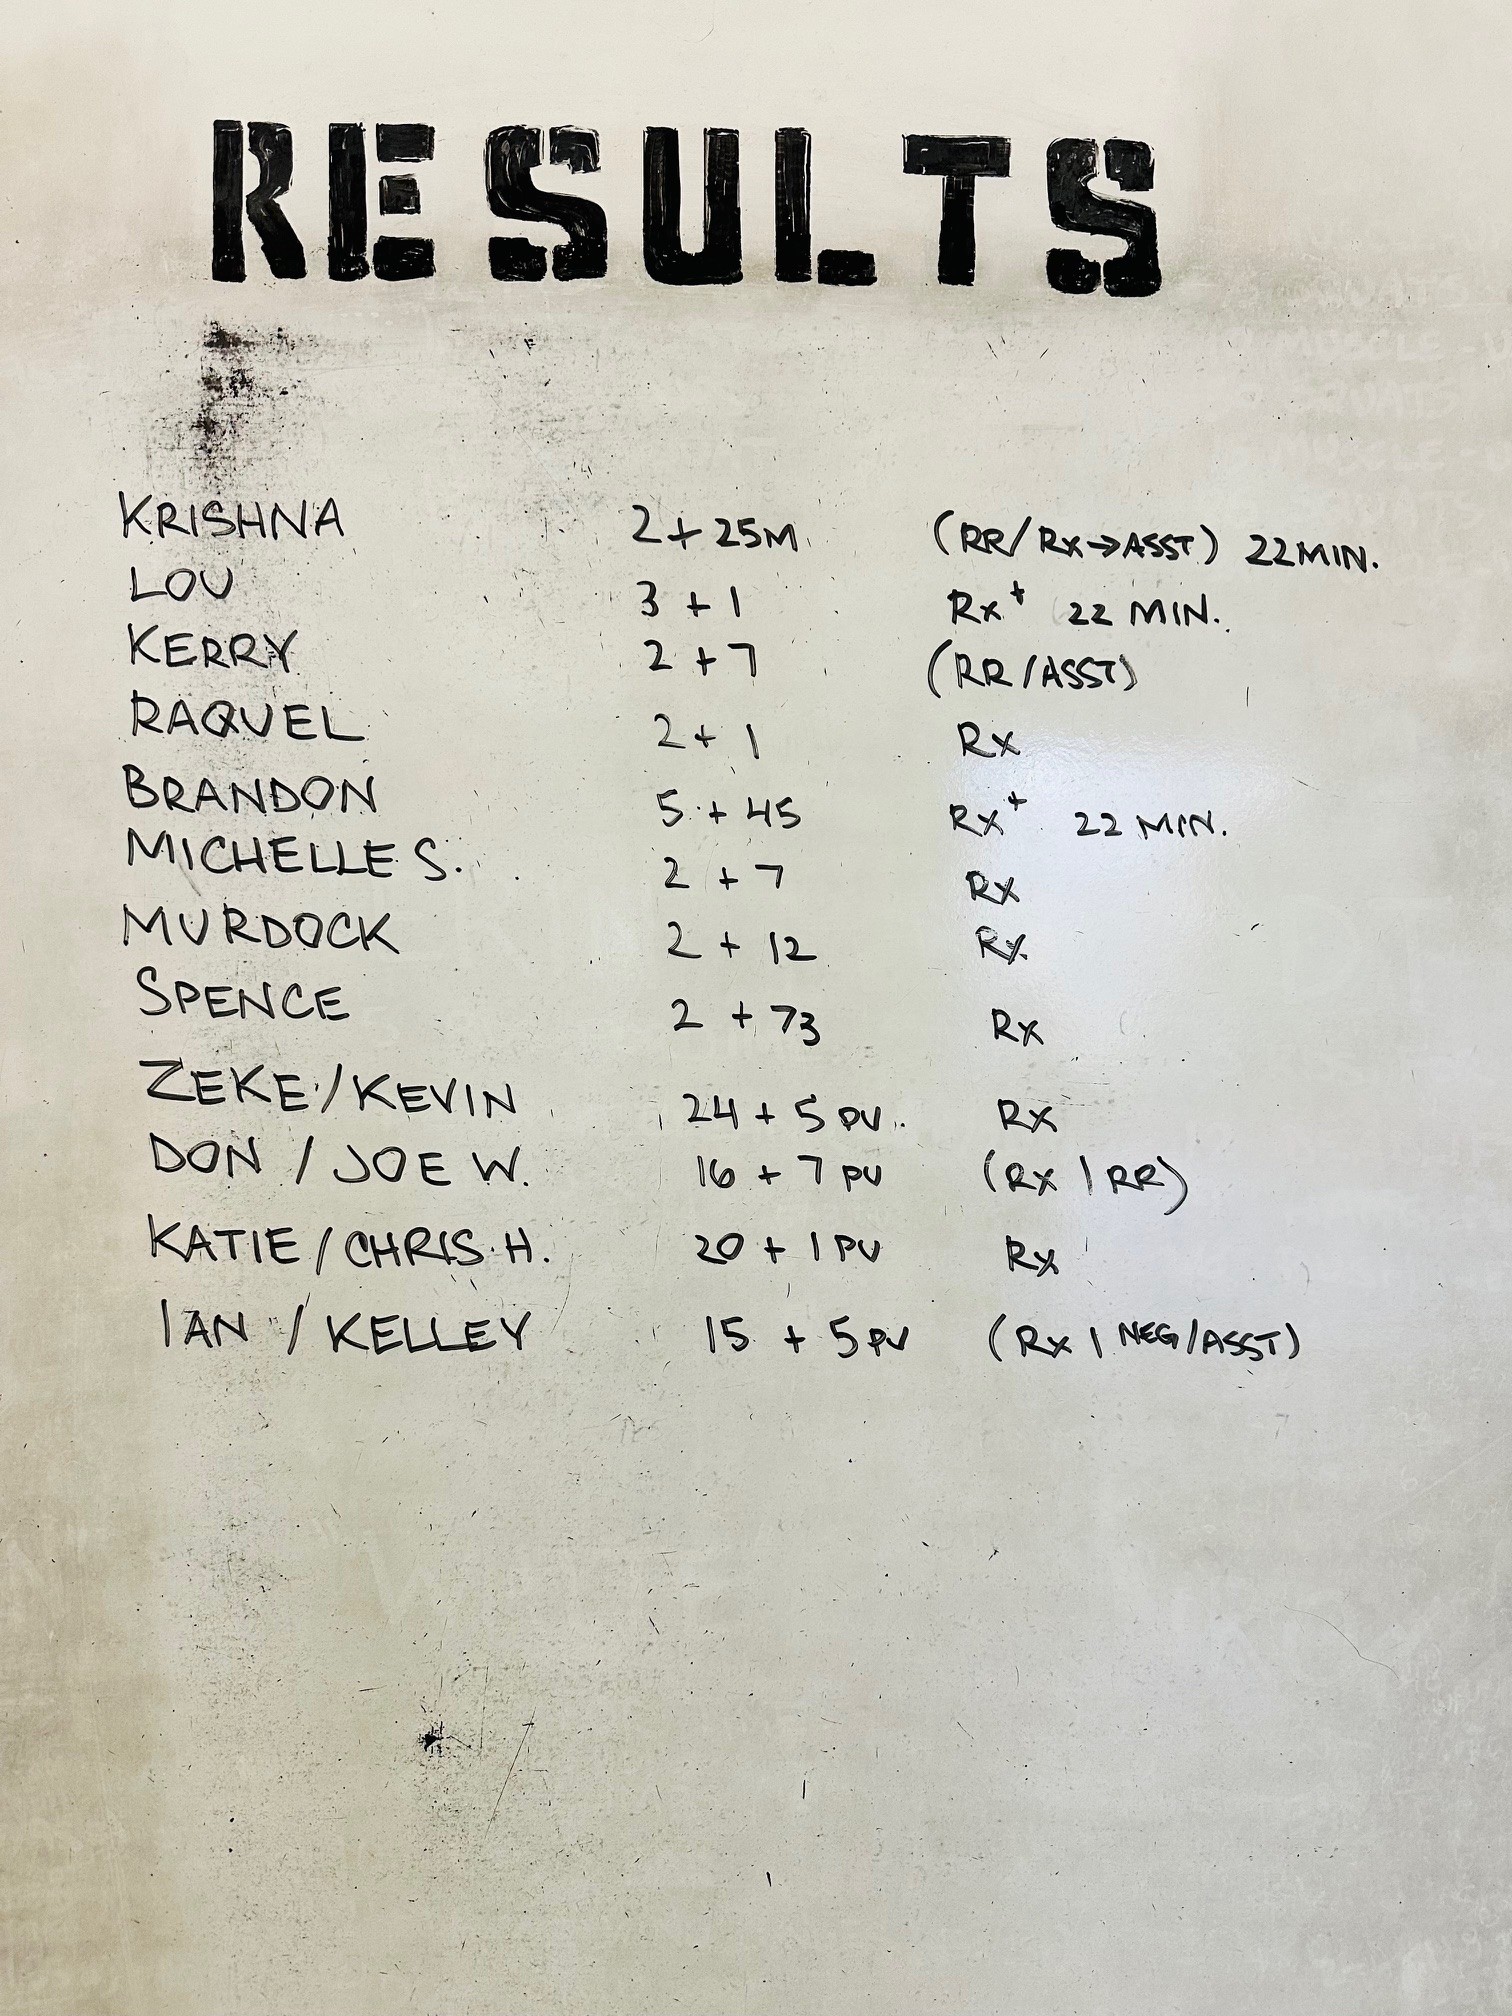 RESULTS
KRISHNA 2 + 25M (RR/RX→ASST) 22MIN.
LOU 3 + 1 RX+ 22 MIN.
KERRY 2 + 7 (RR/ASST)
RAQUEL 2 + 1 RX
BRANDON 5 + 45 RX+ 22 MIN.
MICHELLE S. 2 + 7 RX
MURDOCK 2 + 12 RX
SPENCE 2 + 73 RX
ZEKE/KEVIN 24 + 5 PU. RX
DON / JOE W. 16 + 7 PU (RX | RR)
KATIE/CHRIS H. 20 + 1 PU RX
IAN / KELLEY 15 + 5 PU (RX | NEG/ASST)